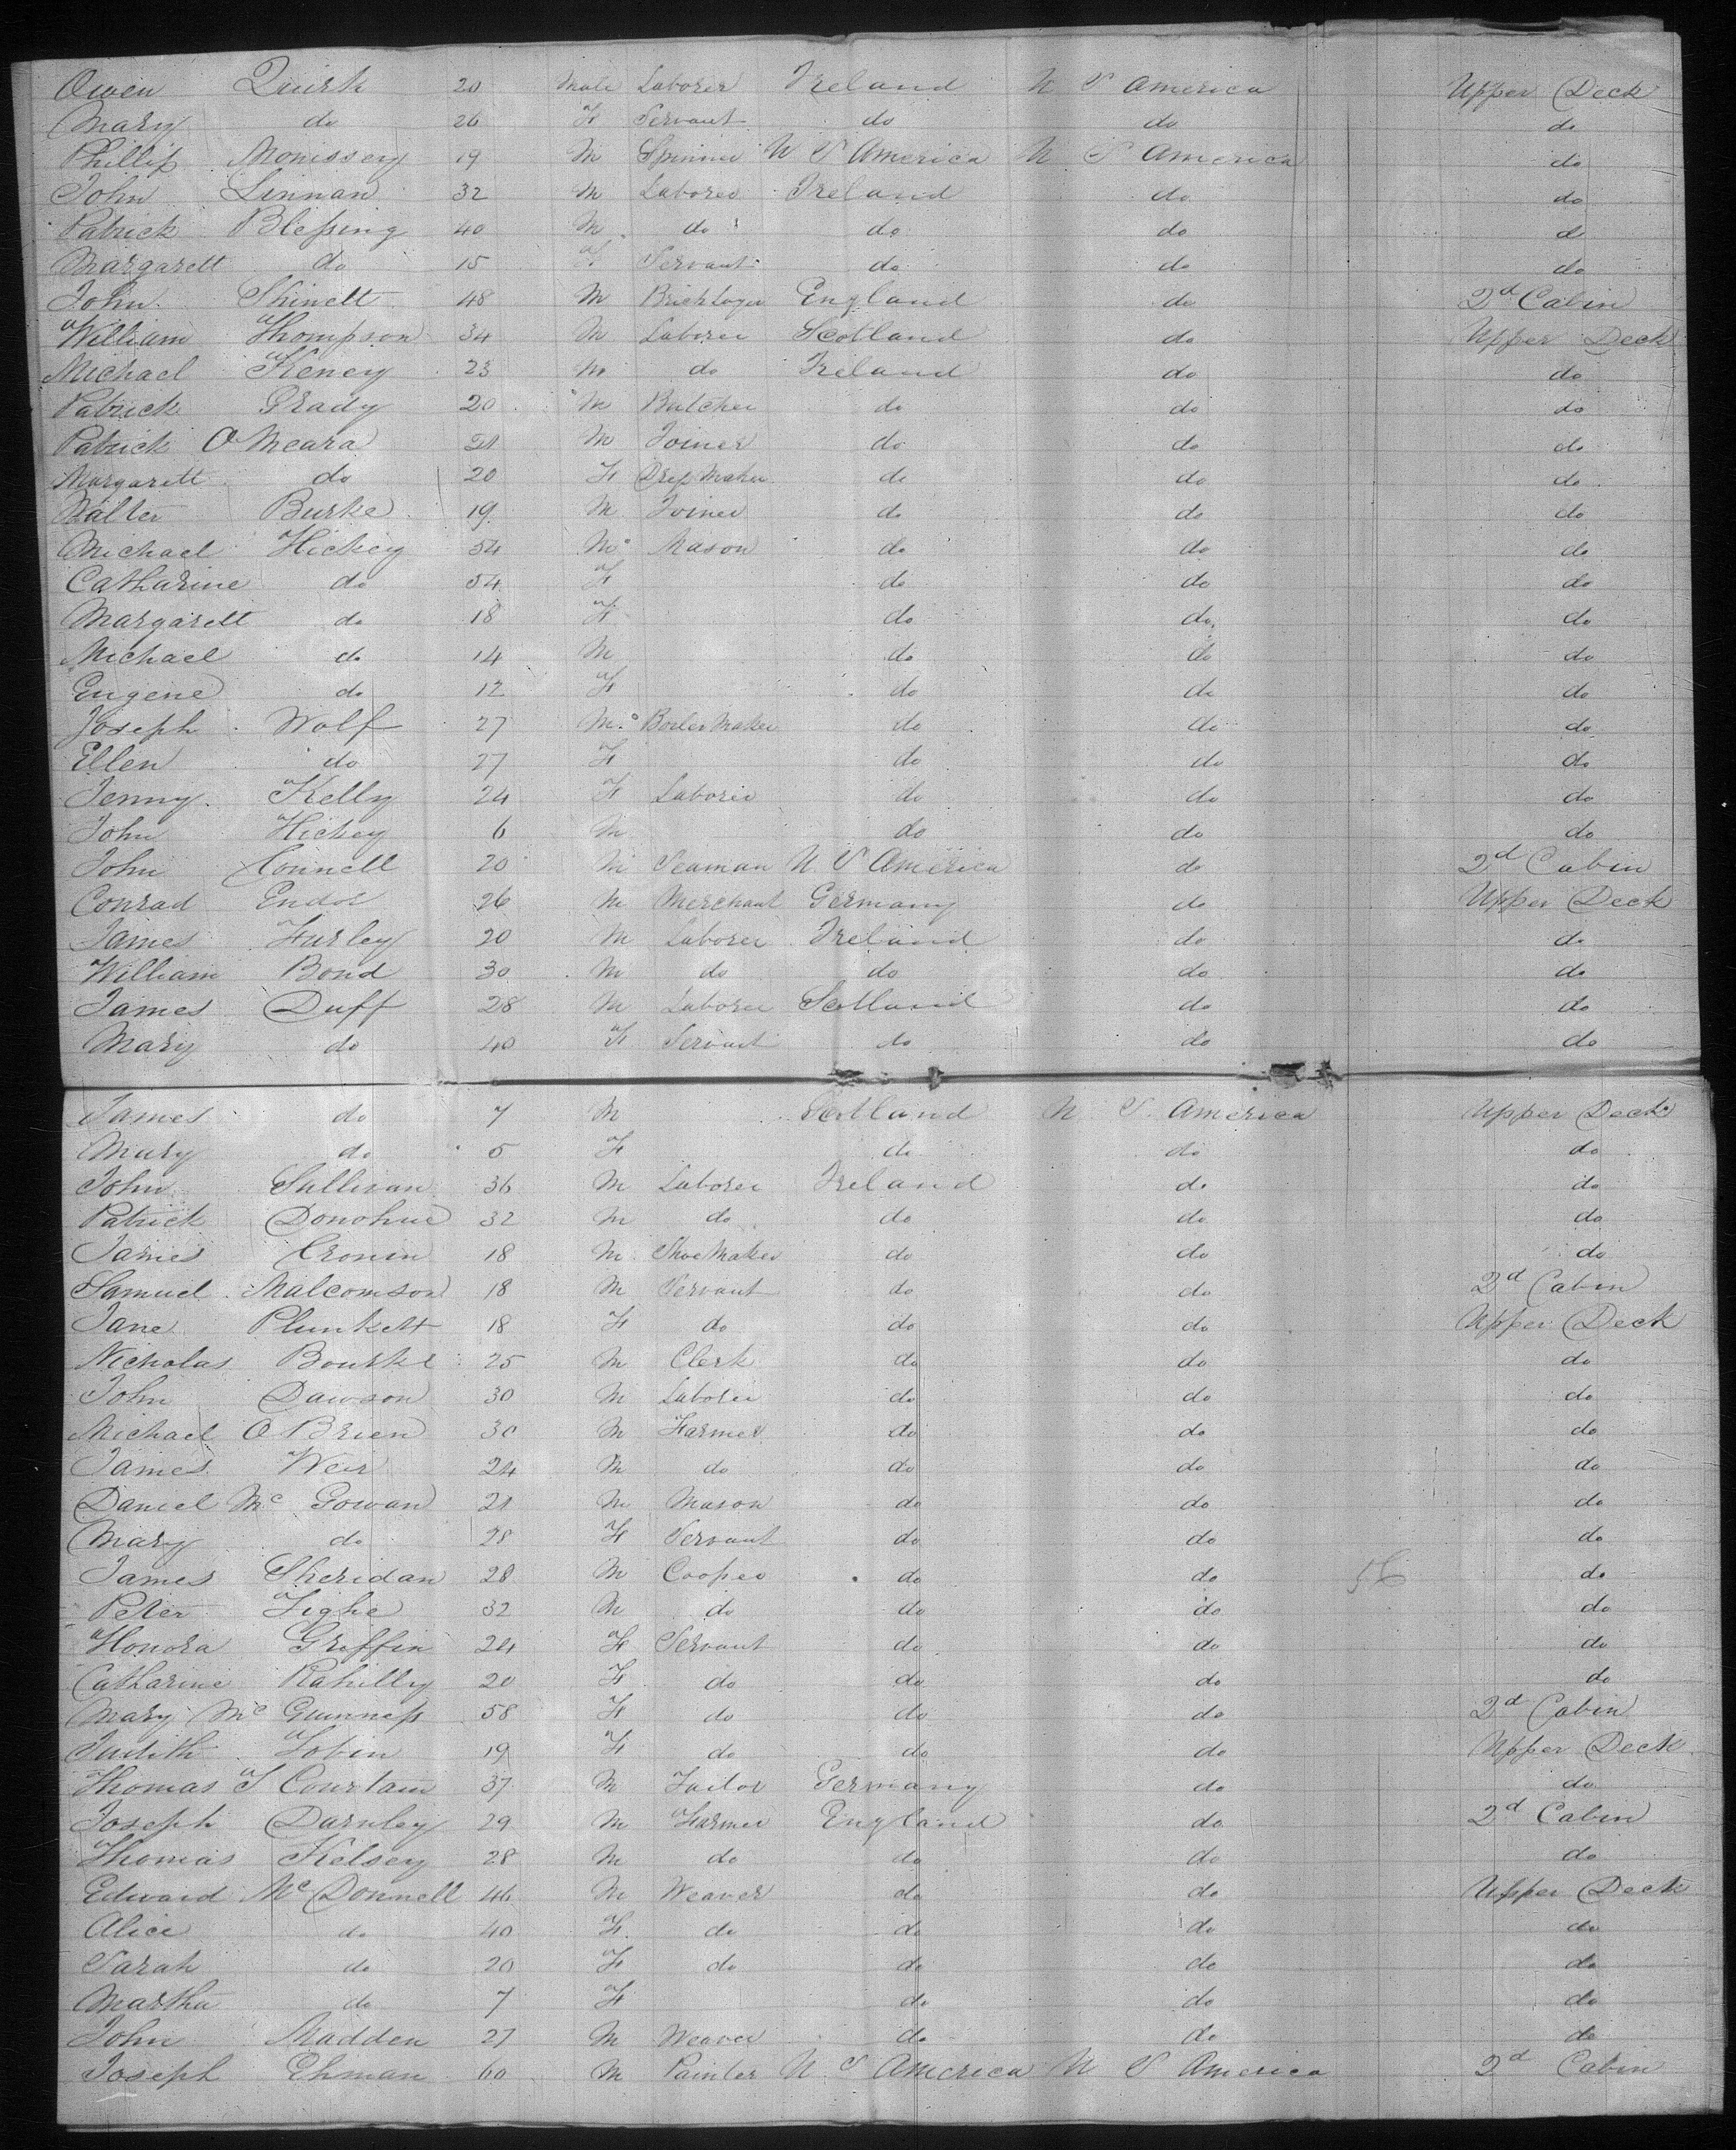 Owen Quirk 20 Male Laborer Ireland U S America Upper Deck
Mary do 26 F Servant do do do
Phillip Monissey 19 M Spinner U S America U S America do
John Linnan 32 M Laborer Ireland do do
Patrick Blessing 40 M do do do d
Margarett do 15 F Servant do do do
John Shinett 48 M Bricklayer England do 2d Cabin
William Thompson 34 M Laborer Scotland do Upper Deck
Michael Keney 23 M do Ireland do do
Patrick Grady 20 M Butcher do do do
Patrick O Meara 21 M Joiner do do do
Margarett do 20 F Dress Maker do do do
Walter Burke 19 M Joiner do do do
Michael Hickey 54 M Mason do do do
Catharine do 54 F do do do
Margarett do 18 F do do do
Michael do 14 M do do do
Eugene do 12 F do do do
Joseph Wolf 27 M Boiler Maker do do do
Ellen do 27 F do do do
Jenny Kelly 24 F Laborer do do do
John Hickey 6 M do do do
John Connell 20 M Seaman U S America do 2d Cabin
Conrad Endor 26 M Merchant Germany do Upper Deck
James Hurley 20 M Laborer Ireland do do
William Bond 30 M do do do do
James Duff 28 M Laborer Scotland do do
Mary do 40 F Servant do do do
James do 7 M Scotland U S. America Upper Deck
Mary do 5 F do do do
John Sullivan 36 M Laborer Ireland do do
Patrick Donohue 32 M do do do do
James Cronin 18 M Shoe Maker do do do
Samuel Malcomson 18 M Servant do do 2d Cabin
Jane Plunkett 18 F do do do Upper Deck
Nicholas Bourke 25 M Clerk do do do
John Dawson 30 M Laborer do do do
Michael O Brien 30 M Farmer do do do
James Weir 24 M do do do do
Daniel Mc Gowan 21 M Mason do do do
Mary do 28 F Servant do do do
James Sheridan 28 M Cooper do do 56 do
Peter Tighe 32 M do do do do
Honora Griffin 24 F Servant do do do
Catharine Rahilly 20 F do do do do
Mary Mc Guinness 58 F do do do 2d Cabin
Judith Tobin 19 F do do do Upper Deck
Thomas S Courtain 37 M Tailor Germany do do
Joseph Darnley 29 M Farmer England do 2d Cabin
Thomas Kelsey 28 M do do do do
Edward Mc Donnell 46 M Weaver do do Upper Deck
Alice do 40 F do do do do
Sarah do 20 F do do do do
Martha do 7 F do do do
John Madden 27 M Weaver do do do
Joseph Ehman 60 M Painter U S America U S America 2d Cabin